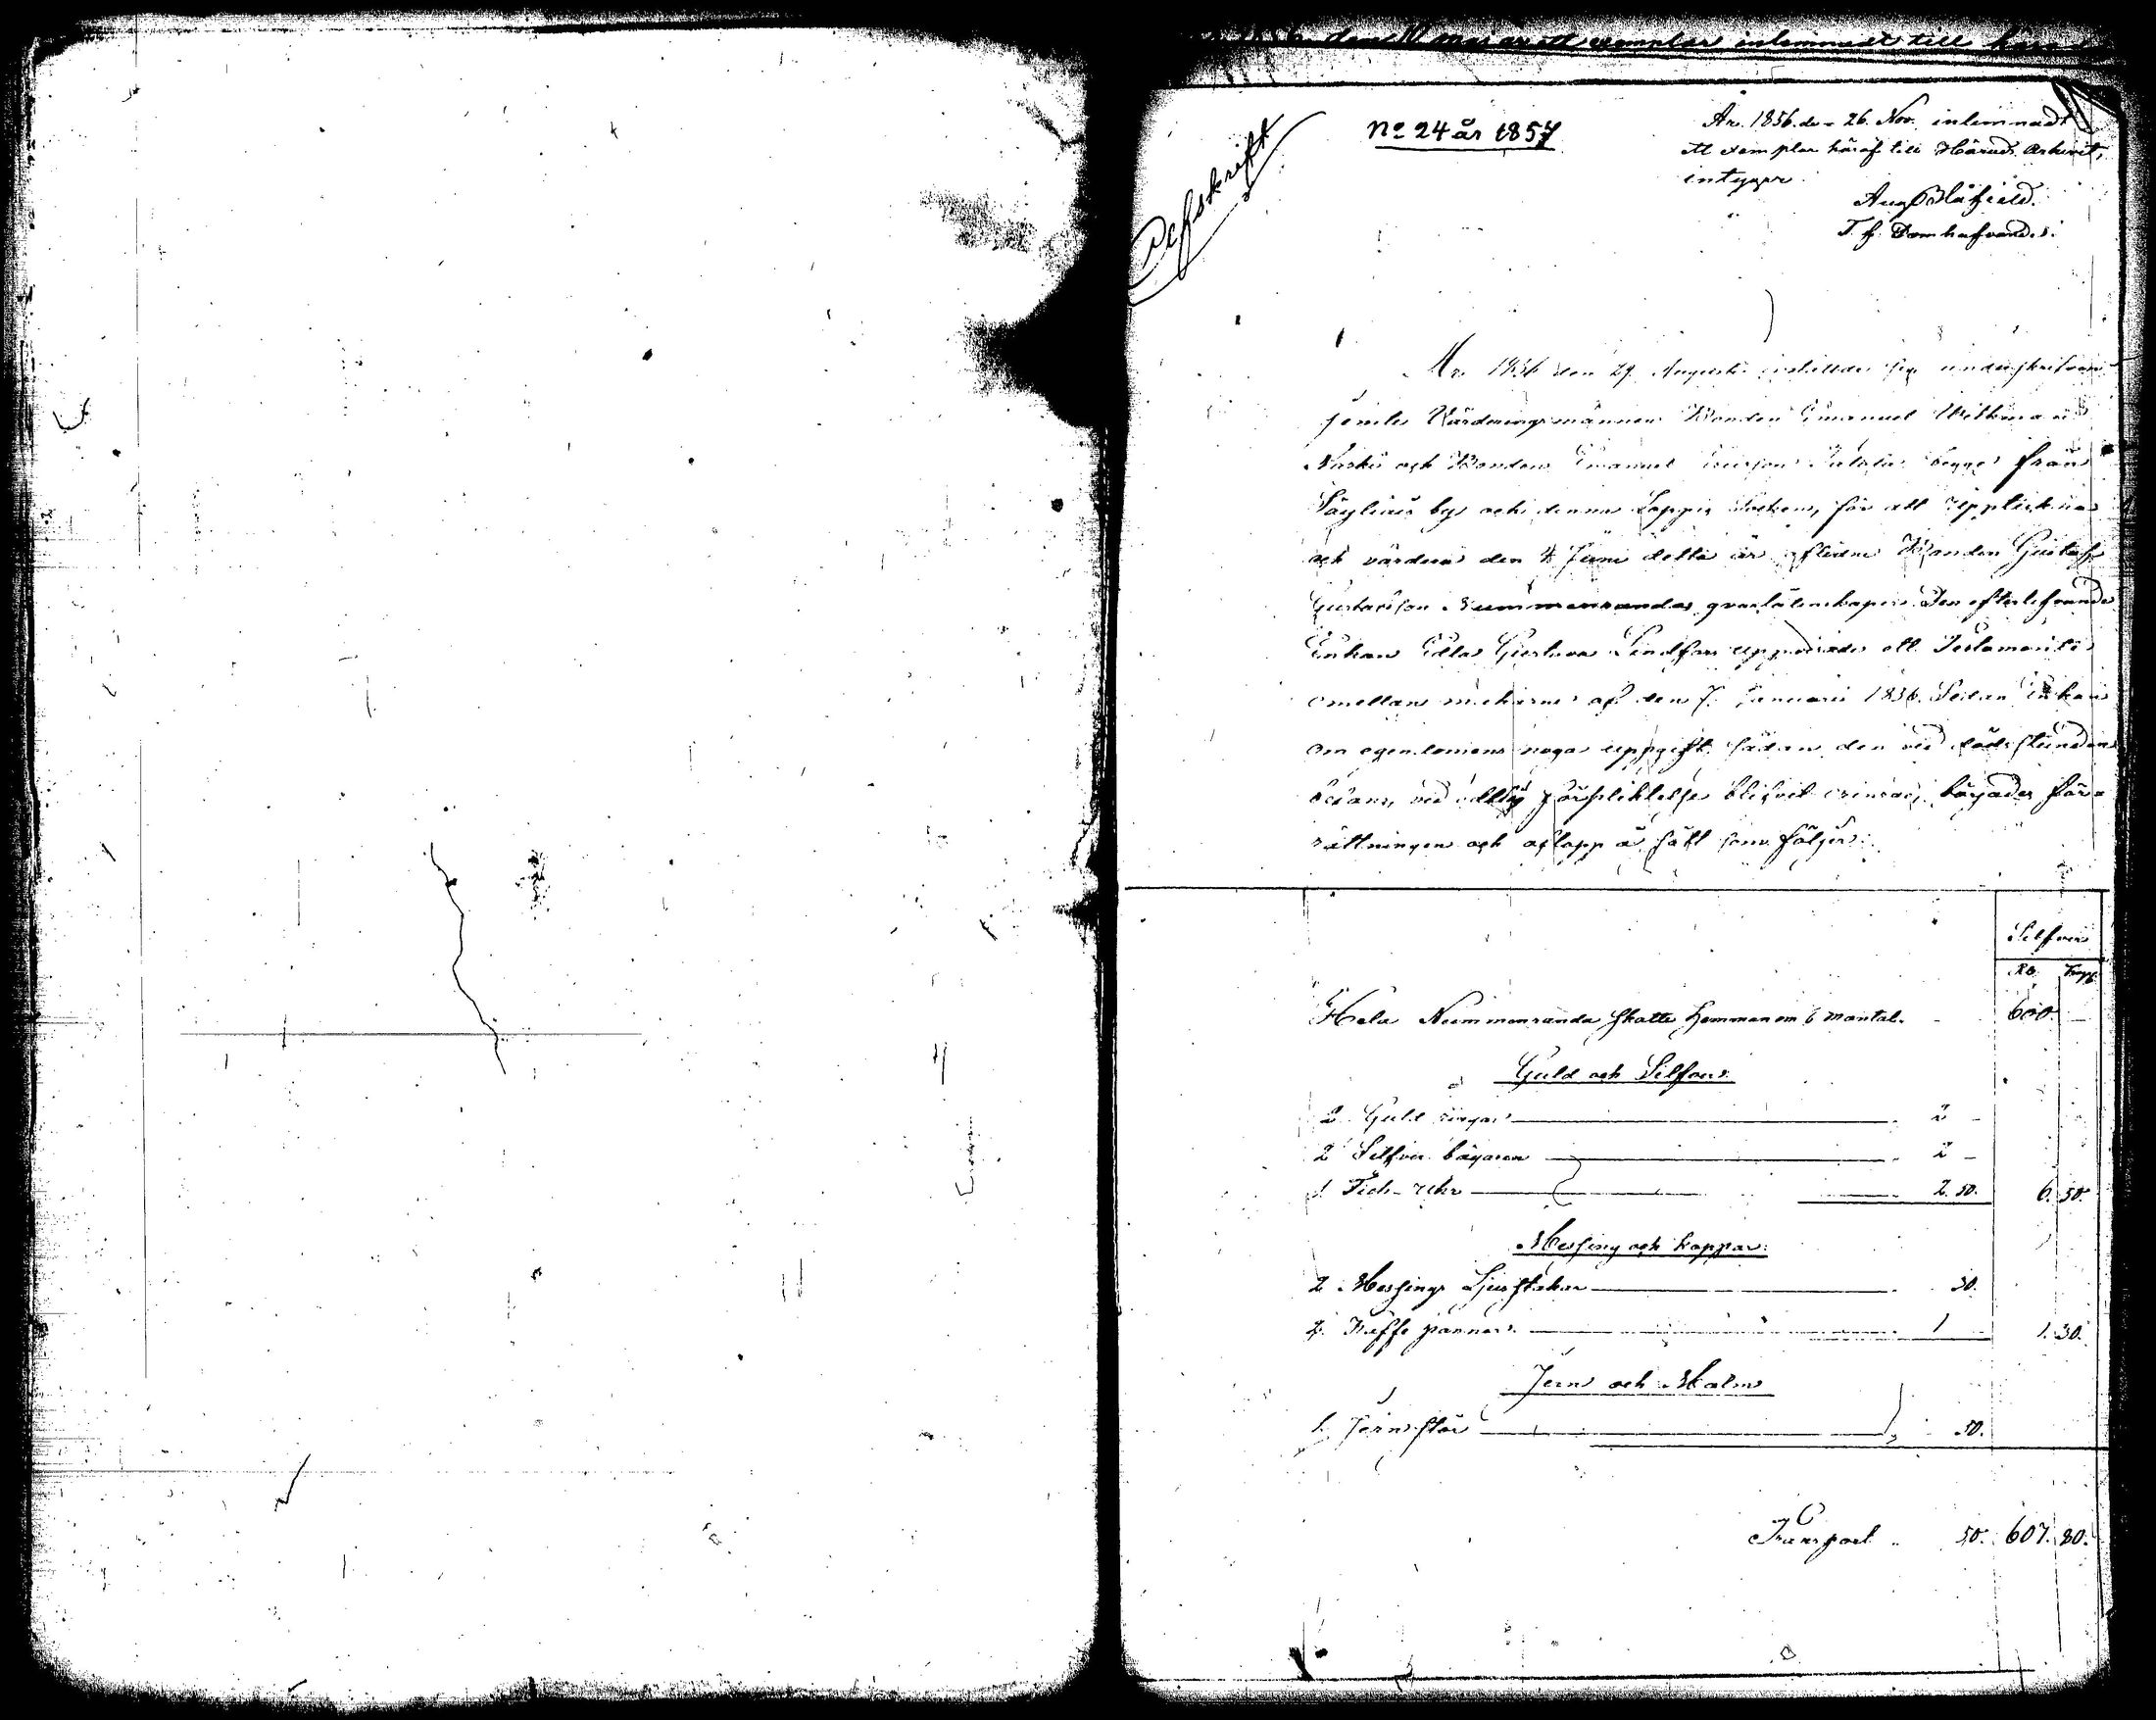 den inlemnadt till
Afskrift
No 24 år 1857
År 1856 de 26 Nov. inlemnadt
ett exemplar häraf till Härads Arkivet,
intygar
Aug Blåfield.
T. f. Domhafvande.
År 1856 den 29 Augusti instälde sig underskrifvne
Värderingsmännen Bonden Emanuel
och Bonden Emanuel begge från
by och denna Lappis Socken, för att uppteckna
och värdera den 4 Juni detta år aflidne Bonden Gustaf
Gustafsson Nummenranda qvarlåtenskaper. Den efterlefvande
Enkan Edla Gustava Lindfors uppvisade ett Testamente
emellan makarne af den 7 Januari 1856. Sedan Enkan
om egendomens noga uppgift sådan den vid dödsstunden
befans, vid edlig förpliktelse blifvit erinrad, börjades för=
rättningen och aflopp å sätt som följer:
Silfver
Rb. Kop.
Hela Nummenranda Skatte Hemman om 6 mantal. 600.
Guld och Silfver:
2 Guld ringar 2 -
2 Silfver bägaren 2 -
1 Fick-Uhr 2. 50. 6. 50.
Messing och koppar:
2 Messings Ljusstakar 30.
2 Kaffe pannor 1 1. 30.
Jern och Malm
1 Jernstör 50.
Transport 50. 607. 80.